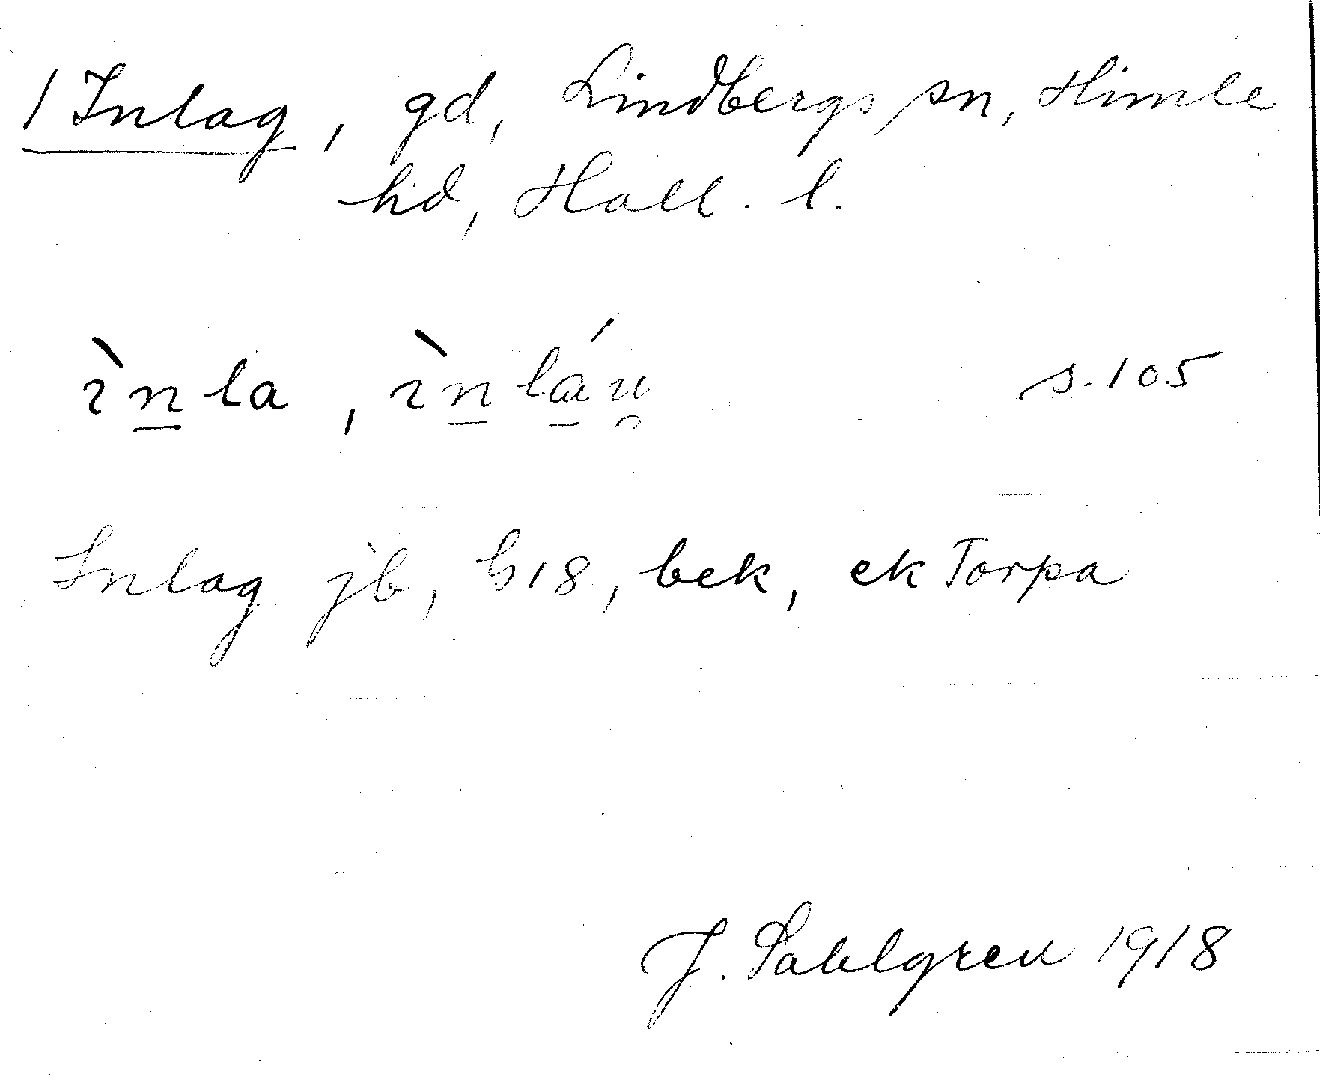 1 Inlag, gd, Lindbergs sn, Himle
hd, Hall. l.
ìn̲la, ìn̲lá̲u̯ s. 105
Inlag jb, G18, bek, ek Torpa
J. Sahlgren 1918